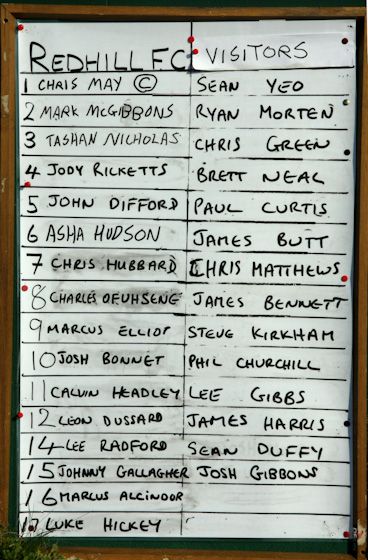 REDHILL FC VISITORS
1 CHRIS MAY © SEAN YEO
2 MARK McGIBBONS RYAN MORTEN
3 TASHAN NICHOLAS CHRIS GREEN
4 JODY RICKETTS BRETT NEAL
5 JOHN DIFFORD PAUL CURTIS
6 ASHA HUDSON JAMES BUTT
7 CHRIS HUBBARD CHRIS MATTHEWS
8 CHARLES OFUHSENE JAMES BENNETT
9 MARCUS ELLIOT STEVE KIRKHAM
10 JOSH BONNET PHIL CHURCHILL
11 CALVIN HEADLEY LEE GIBBS
12 LEON DUSSARD JAMES HARRIS
14 LEE RADFORD SEAN DUFFY
15 JOHNNY GALLAGHER JOSH GIBBONS
16 MARCUS ALCINDOR
17 LUKE HICKEY